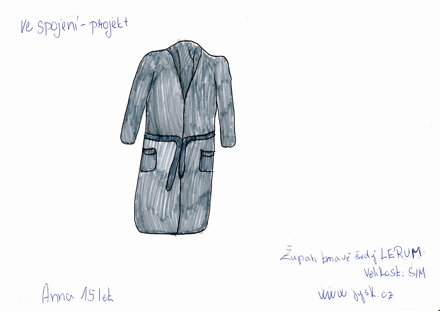 ve spojení - projekt
Župan tmavě šedý LERUM
Velikost: S/M
www.jysk.cz
Anna 15 let